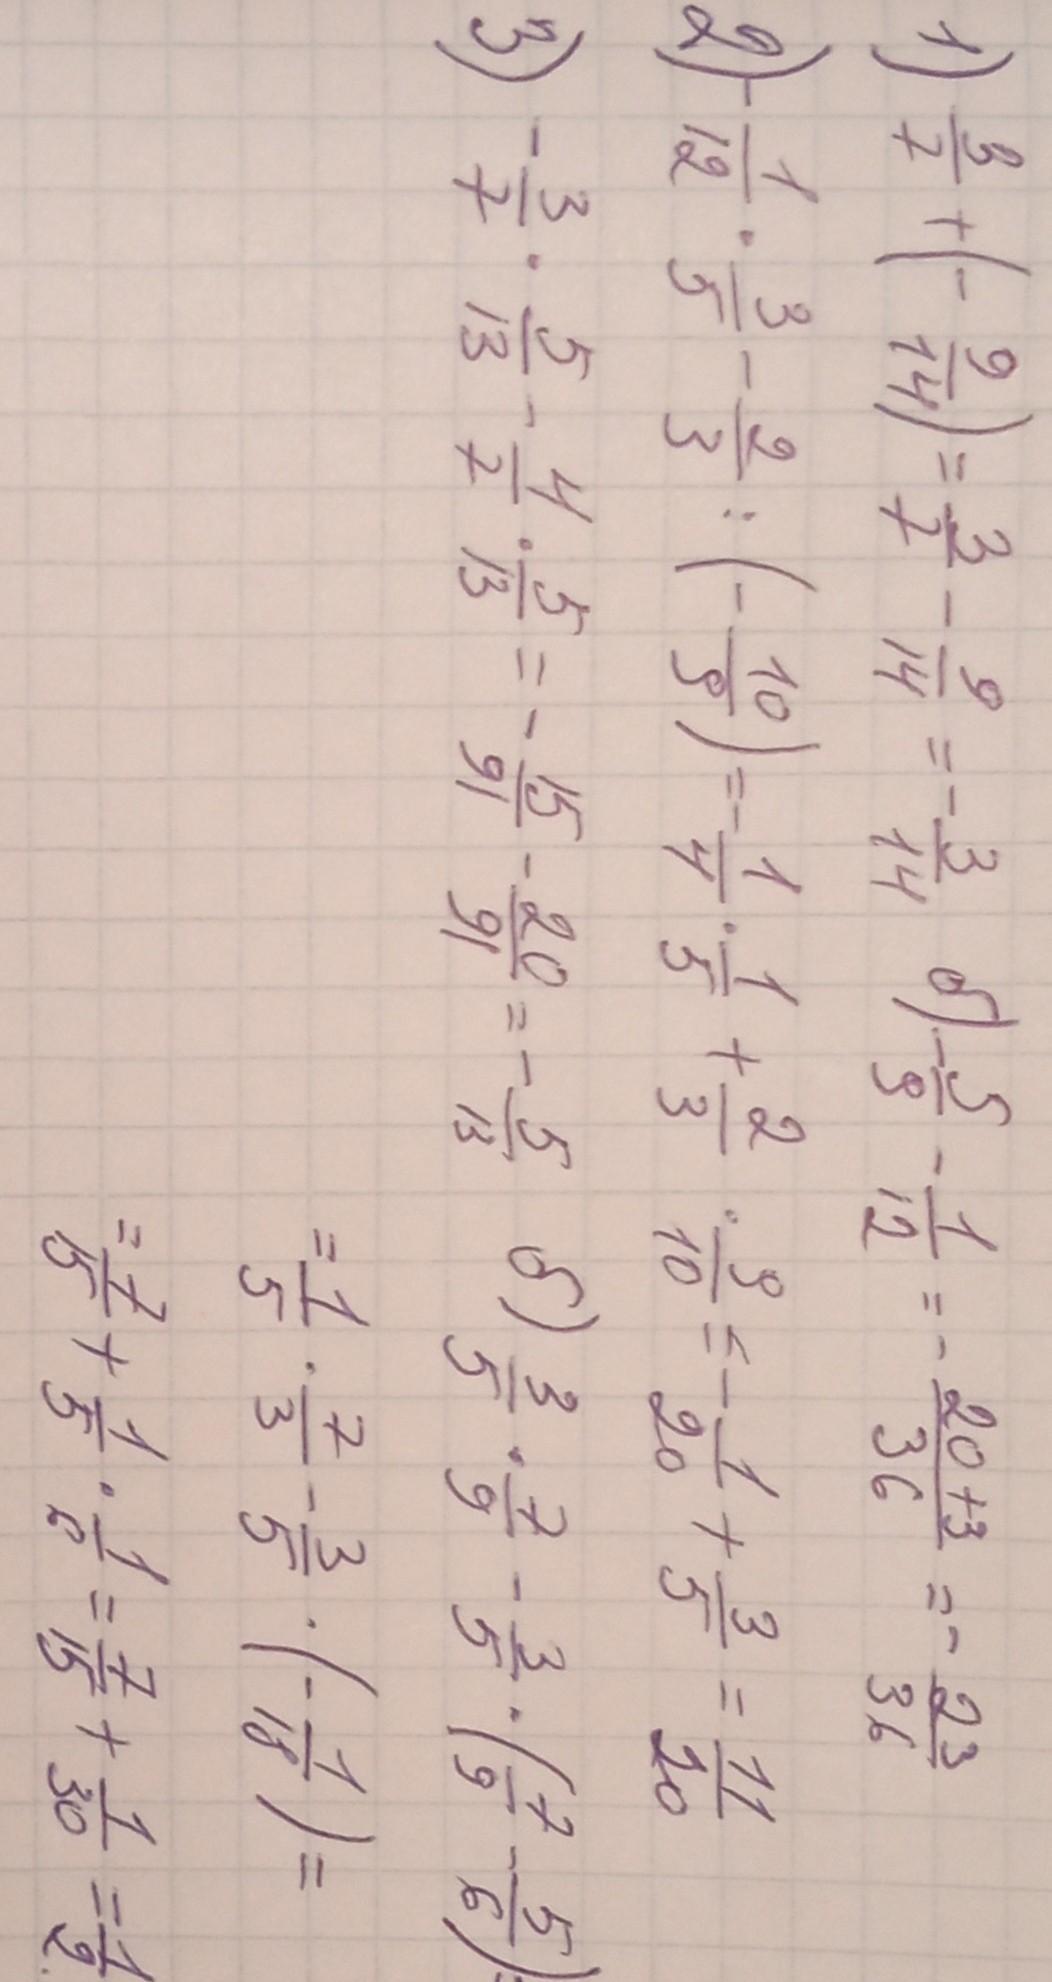 1) 3/7 + (- 9/14) = 3/7 - 9/14 = - 3/14 б) - 5/9 - 1/12 = - 20+3/36 = - 23/36
2) - 1/12 · 3/5 - 2/3 : (- 10/9) = - 1/4 · 1/5 + 2/3 · 9/10 = - 1/20 + 3/5 = 11/20
3) - 3/7 · 5/13 - 4/7 · 5/13 = - 15/91 - 20/91 = - 5/13 б) 3/5 · 7/9 - 3/5 · (7/9 - 5/6) =
= 1/5 · 7/3 - 3/5 · (- 1/18) =
= 7/15 + 1/5 · 1/6 = 7/15 + 1/30 = 1/2.